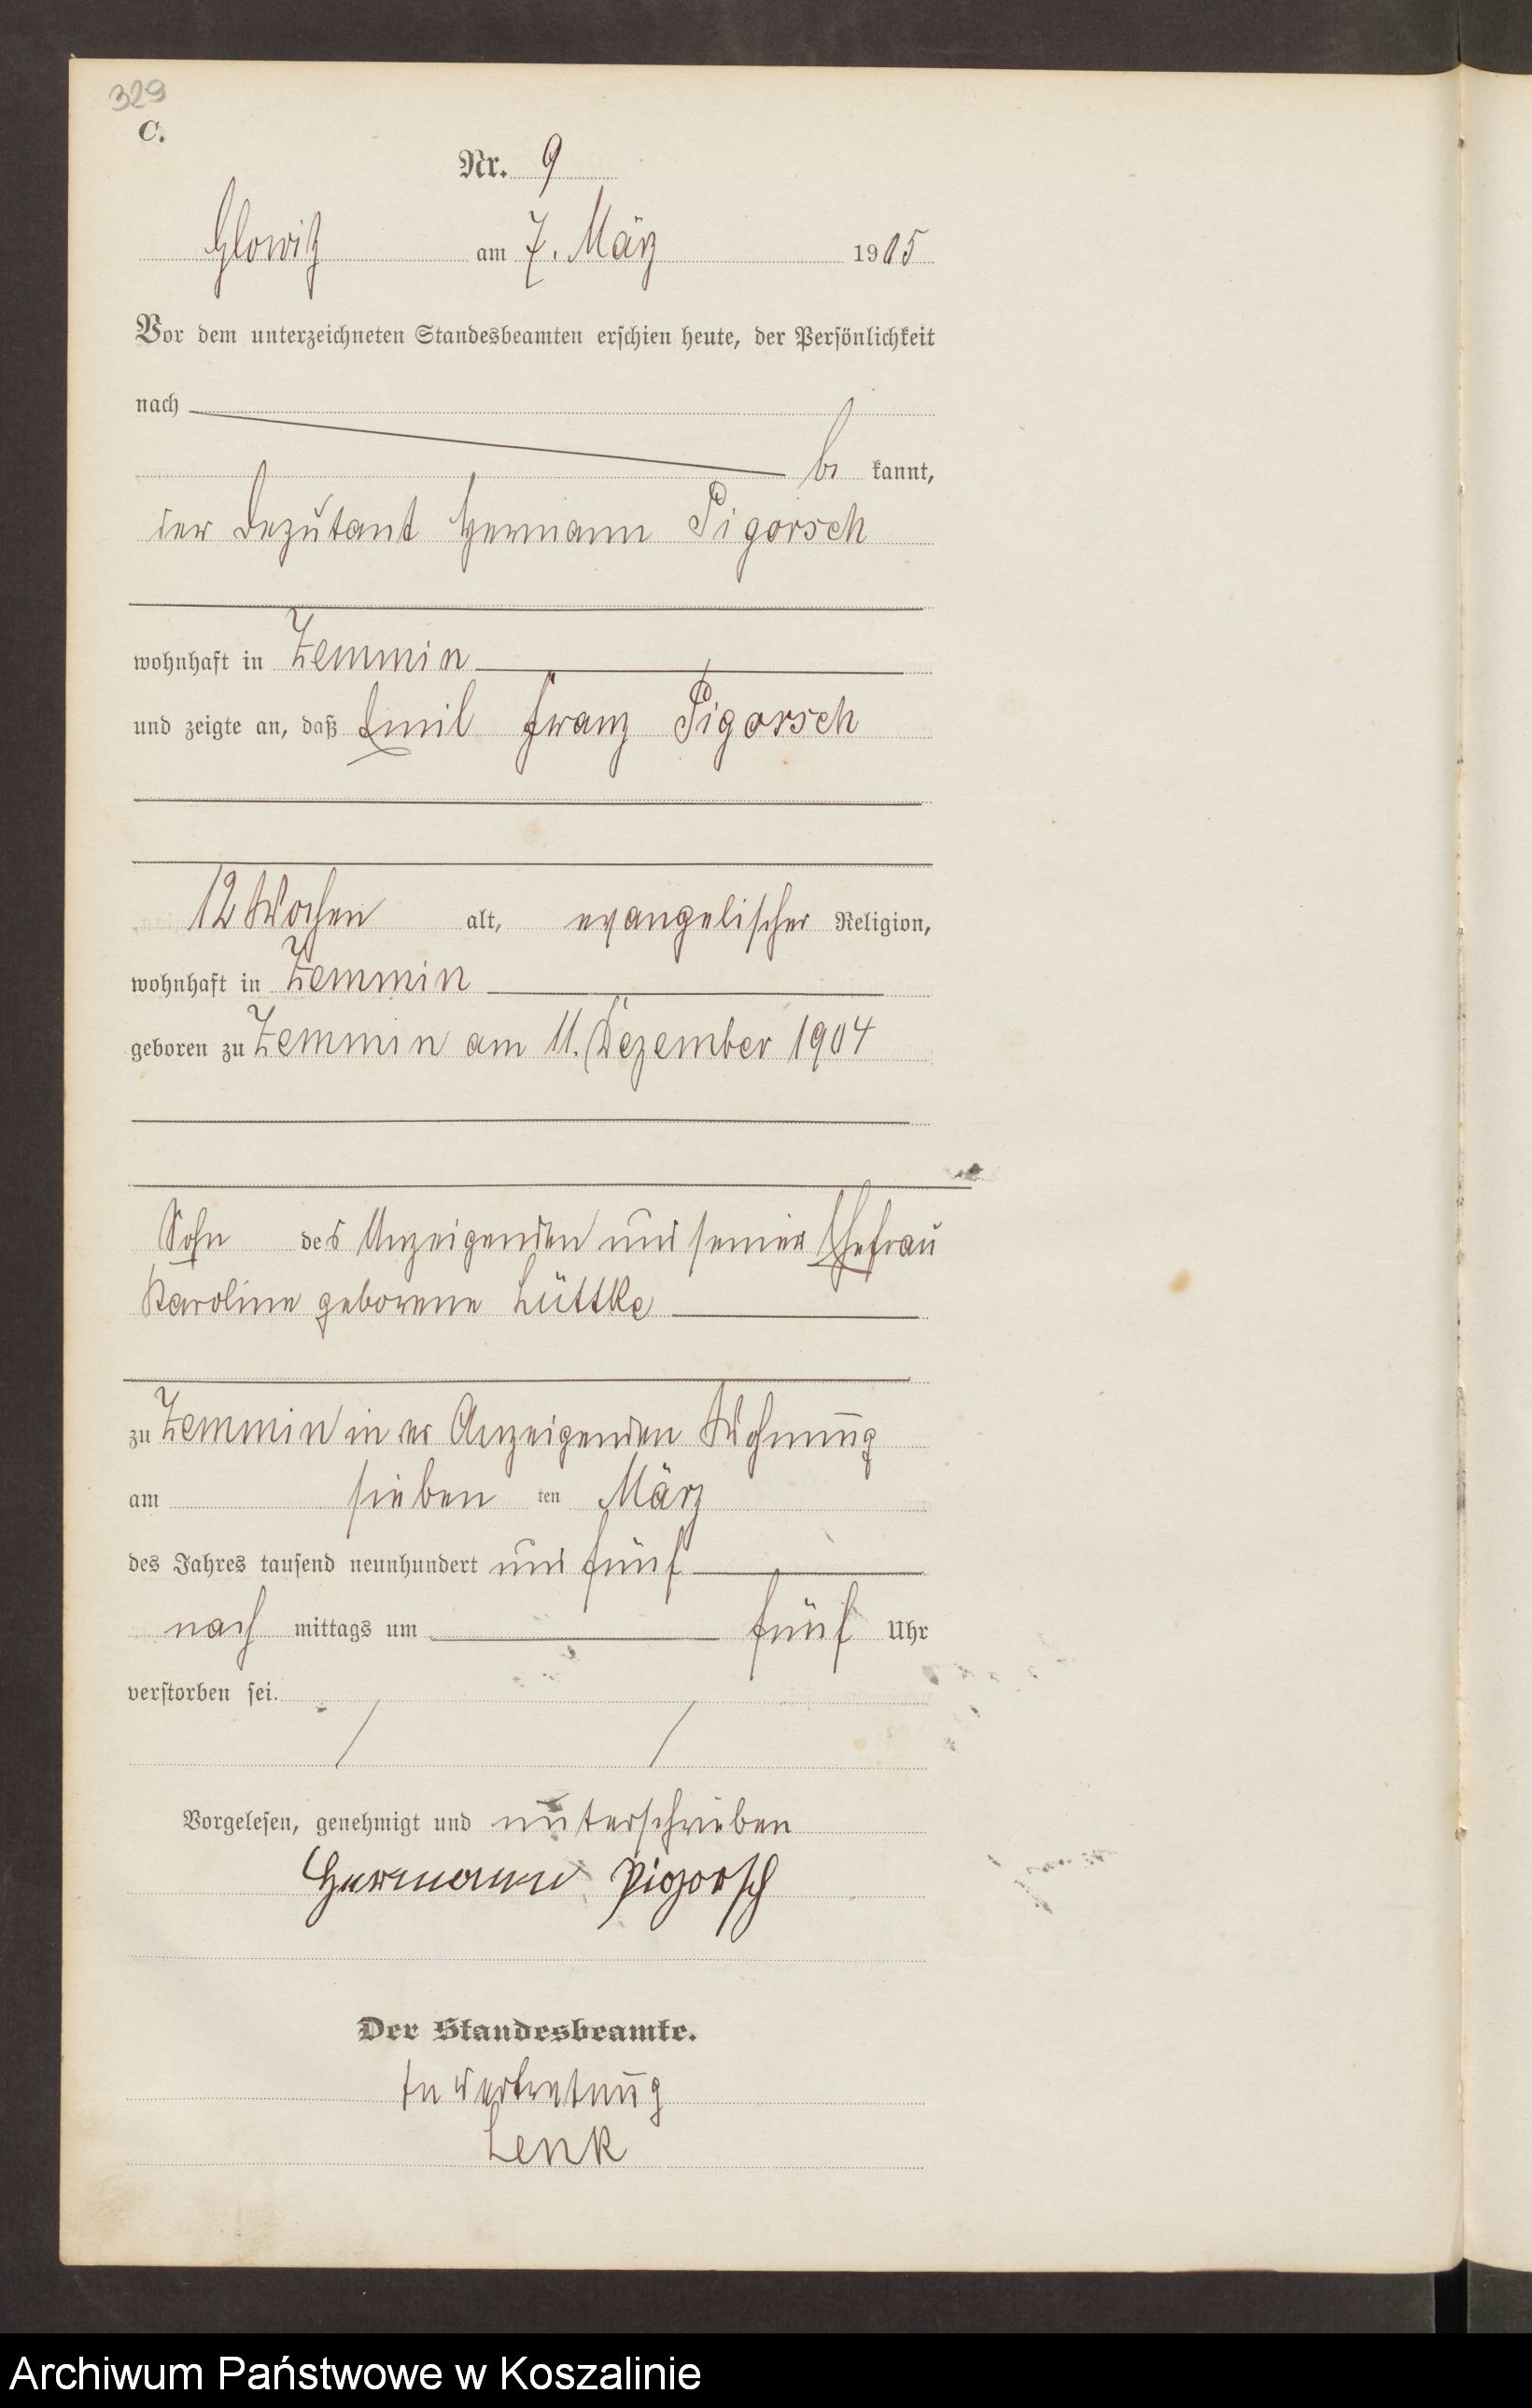 329
C.
Nr. 9
Glowitz am 7. März 1905
Vor dem unterzeichneten Standesbeamten erschien heute, der Persönlichkeit
nach
be kannt,
der Deputant Hermann Pigorsch
wohnhaft in Zemmin
und zeigte an, daß Emil Franz Pigorsch
12 Wochen alt, evangelischer Religion,
wohnhaft in Zemmin
geboren zu Zemmin am 11. Dezember 1904
Sohn des Anzeigenden und seiner Ehefrau
Karoline geborene Lüttke
zu Zemmin in der Anzeigenden Wohnung
am sieben ten März
des Jahres tausend neunhundert und fünf
nach mittags um fünf Uhr
verstorben sei.
Vorgelesen, genehmigt und unterschrieben
Hermann Pigorsch
Der Standesbeamte.
In Vertretung
Lenk
Archiwum Państwowe w Koszalinie